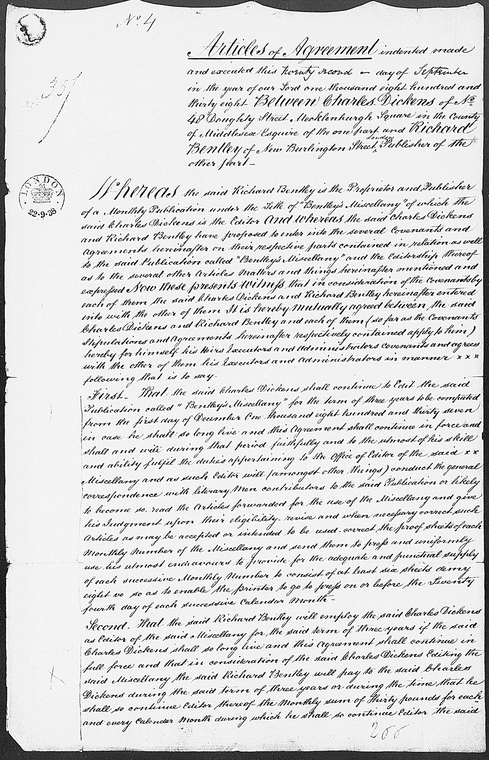 No. 4
35/
Articles of Agreement indented made
and executed this twenty second — day of September
in the year of our Lord one thousand eight hundred and
thirty eight Between Charles Dickens of No.
48 Doughty Street Mecklenburgh Square in the County
of Middlesex Esquire of the one part and Richard
London
Bentley of New Burlington Street, Publisher of the
other part —
LONDON
22-9-38
Whereas the said Richard Bentley is the Proprietor and Publisher
of a Monthly Publication under the Title of "Bentley's Miscellany" of which the
said Charles Dickens is the Editor And whereas the said Charles Dickens
and Richard Bentley have proposed to enter into the several Covenants and
Agreements hereinafter on their respective parts contained in relation as well
to the said Publication called "Bentley's Miscellany" and the Editorship thereof
as to the several other Articles matters and things hereinafter mentioned and
expressed Now these presents witness that in consideration of the Covenants by
each of them the said Charles Dickens and Richard Bentley hereinafter entered
into with the other of them It is hereby mutually agreed between the said
Charles Dickens and Richard Bentley and each of them (so far as the Covenants
Stipulations and Agreements hereinafter respectively contained apply to him)
hereby for himself his Heirs Executors and Administrators Covenants and agrees
with the other of them his Executors and Administrators in manner x x x
following that is to say
First — That the said Charles Dickens shall continue to Edit the said
Publication called "Bentley's Miscellany" for the term of three years to be computed
from the first day of December One thousand eight hundred and thirty seven
in case he shall so long live and this Agreement shall continue in force and
shall and will during that period faithfully and to the utmost of his skill
and ability fulfil the duties appertaining to the Office of Editor of the said x x
Miscellany and as such Editor will (amongst other things) conduct the general
correspondence with literary men contributors to the said Publication or likely
to become so. read the Articles forwarded for the use of the Miscellany and give
his Judgment upon their eligibility. revise and when necessary correct such
Articles as may be accepted or intended to be used correct the proof sheets of each
Monthly Number of the Miscellany and send them to press and uniformly
use his utmost endeavours to provide for the adequate and punctual supply
of each successive Monthly Number to consist of at least six sheets demy
eight vo so as to enable the printer to go to press on or before the Twenty
fourth day of each successive Calendar Month —
Second. That the said Richard Bentley will employ the said Charles Dickens
as Editor of the said Miscellany for the said term of three years if the said
Charles Dickens shall so long live and this Agreement shall continue in
full force and that in consideration of the said Charles Dickens Editing the
said Miscellany the said Richard Bentley will pay to the said Charles
Dickens during the said term of three years or during the time that he
shall so continue Editor thereof the Monthly sum of Thirty pounds for each
and every Calendar Month during which he shall so continue Editor the said
266